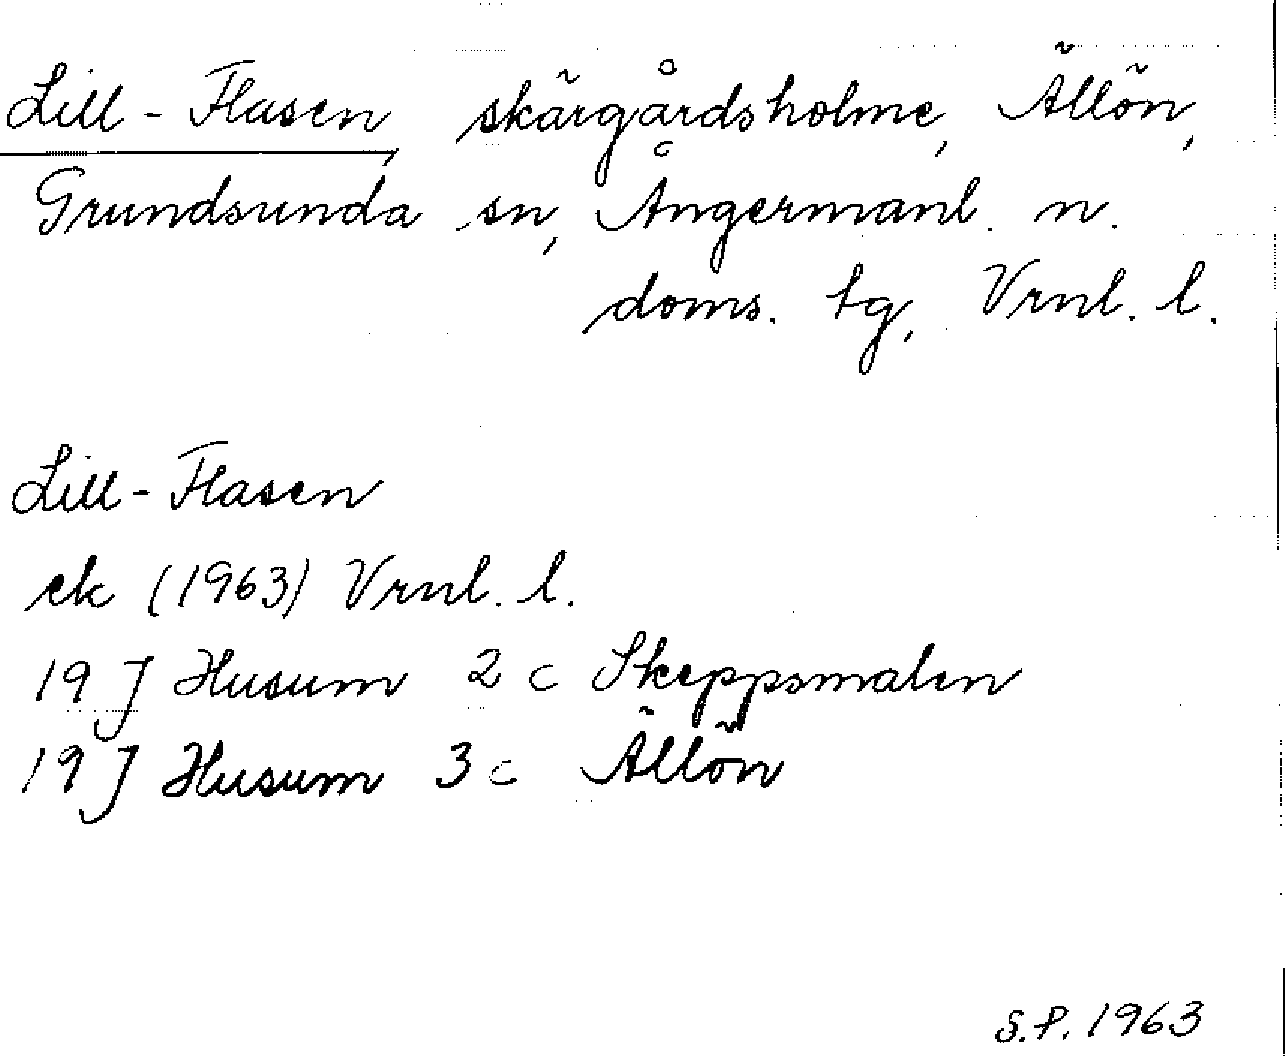 Lill-Flasen, skärgårdsholme, Ällön,
Grundsunda sn, Ångermanl. n.
doms. tg, Vrnl. l.
Lill-Flasen
ek (1963) Vrnl. l.
19 J Husum 2 c Skeppsmalen
19 J Husum 3 c Ällön
S.P. 1963